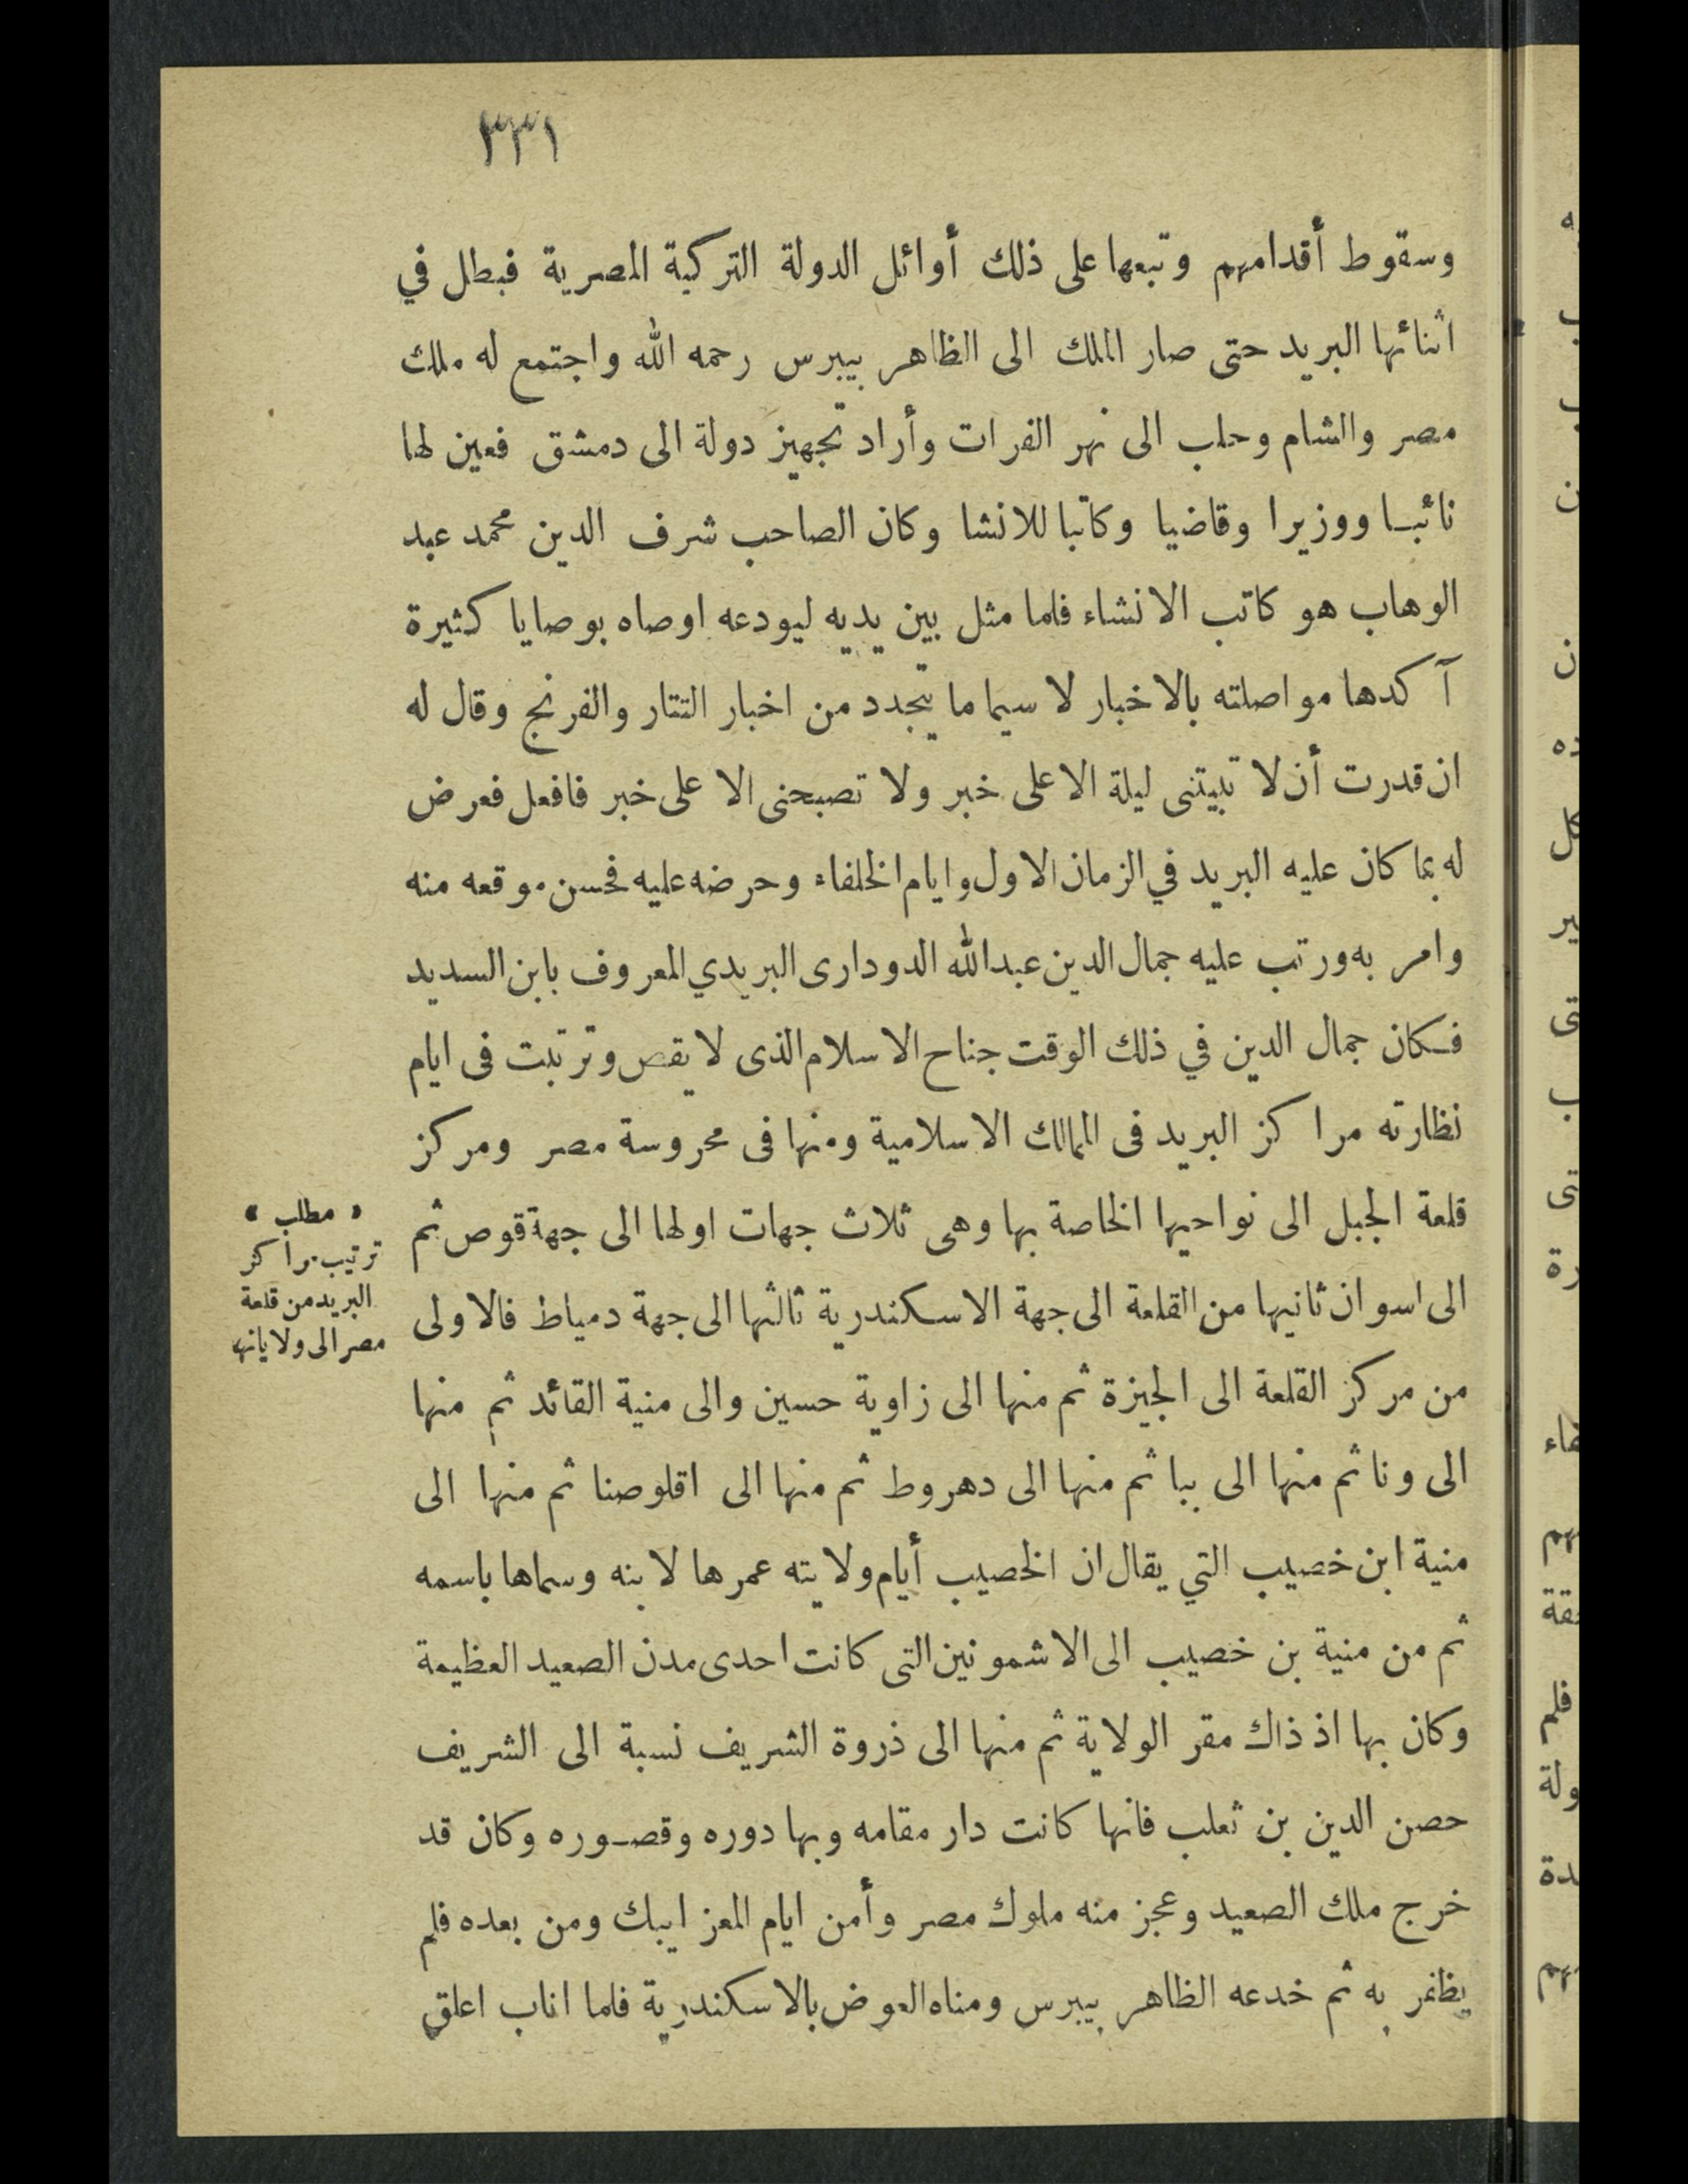 ٣٣١
وسقوط أقدامهم وتبعها على ذلك أوائل الدولة التركية المصرية فبطل في
اثنائها البريد حتى صار الملك الى الظاهر بيبرس رحمه الله واجتمع له ملك
مصر والشام وحلب الى نهر الفرات وأراد تجهيز دولة الى دمشق فعين لها
نائبا ووزيرا وقاضيا وكاتبا للانشا وكان الصاحب شرف الدين محمد عبد
الوهاب هو كاتب الانشاء فلما مثل بين يديه ليودعه اوصاه بوصايا كثيرة
آكدها مواصلته بالاخبار لا سيما ما يتجدد من اخبار التتار والفرنج وقال له
ان قدرت أن لا تبيتنى ليلة الا على خبر ولا تصبحنى الا على خبر فافعل فعرض
له بما كان عليه البريد في الزمان الاول وايام الخلفاء وحرضه عليه فحسن موقعه منه
وامر به ورتب عليه جمال الدين عبد الله الدودارى البريدي المعروف بابن السديد
فكان جمال الدين في ذلك الوقت جناح الاسلام الذى لا يقص وترتبت فى ايام
نظارته مراكز البريد فى الممالك الاسلامية ومنها فى محروسة مصر ومركز
قلعة الجبل الى نواحيها الخاصة بها وهى ثلاث جهات اولها الى جهة قوص ثم
الى اسوان ثانيها من القلعة الى جهة الاسكندرية ثالثها الى جهة دمياط فالاولى
من مركز القلعة الى الجيزة ثم منها الى زاوية حسين والى منية القائد ثم منها
الى ونا ثم منها الى ببا ثم منها الى دهروط ثم منها الى اقلوصنا ثم منها الى
منية ابن خصيب التي يقال ان الخصيب أيام ولايته عمرها لابنه وسماها باسمه
ثم من منية بن خصيب الى الاشمونين التى كانت احدى مدن الصعيد العظيمة
وكان بها اذ ذاك مقر الولاية ثم منها الى ذروة الشريف نسبة الى الشريف
حصن الدين بن ثعلب فانها كانت دار مقامه وبها دوره وقصوره وكان قد
خرج ملك الصعيد وعجز منه ملوك مصر وأمن ايام المعز ايبك ومن بعده فلم
يظفر به ثم خدعه الظاهر بيبرس ومناه العوض بالاسكندرية فلما اناب اعلق
« مطلب »
ترتيب مراكز
البريد من قلعة
مصر الى ولاياتها